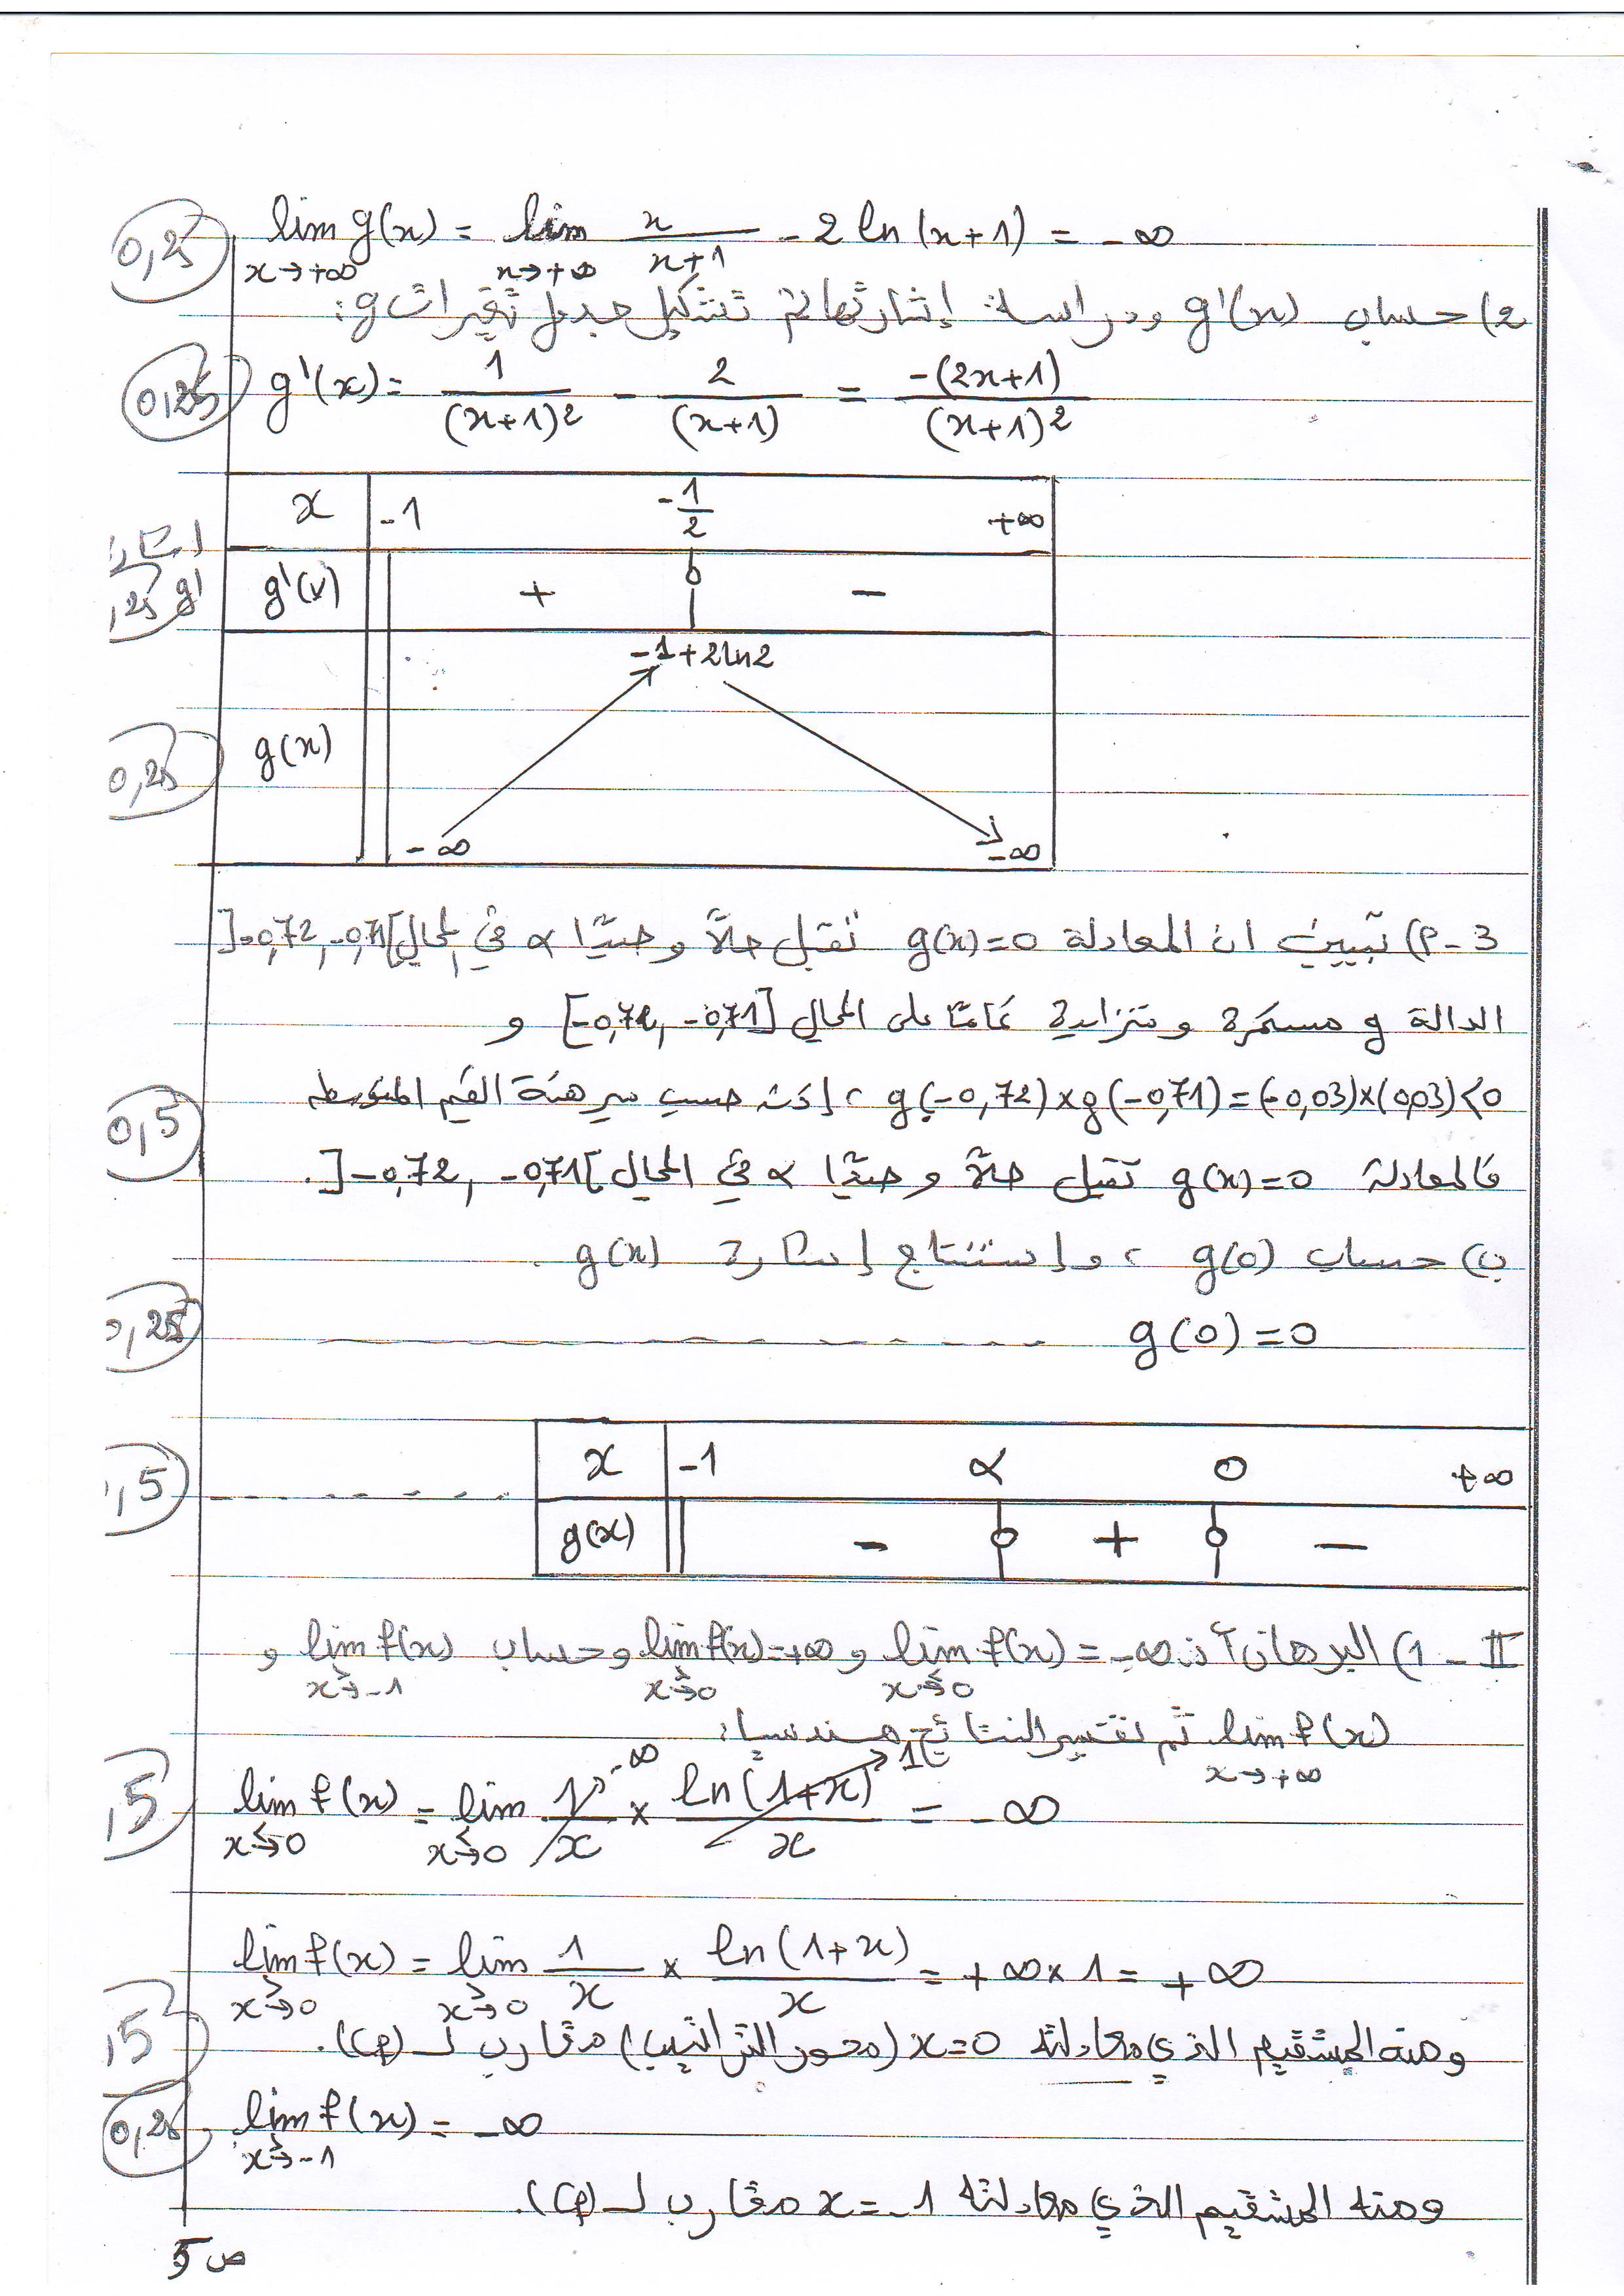 0,25 lim g(x) = lim x/(x+1) - 2 ln(x+1) = -∞
x→+∞ x→+∞
2) حساب g'(x) ودراسة إشارتها ثم تشكيل جدول تغيرات g:
0,25 g'(x) = 1/(x+1)² - 2/(x+1) = -(2x+1)/(x+1)²
x -1 -1/2 +∞
,25 g' g'(x) + 0 -
-1+2ln2
0,25 g(x)
-∞ -∞
3 - أ) تبيين ان المعادلة g(x)=0 تقبل حلاً وحيدًا α في المجال ]-0,72, -0,71[
الدالة g مستمرة و متزايدة تمامًا على المجال [-0,72, -0,71] و
0,5 g(-0,72)×g(-0,71)=(-0,03)×(0,03)<0 ، إذن حسب مبرهنة القيم المتوسطة
فالمعادلة g(x)=0 تقبل حلاً وحيدًا α في المجال ]-0,72, -0,71[.
ب) حساب g(0) ، و إستنتاج إشارة g(x).
,25 g(0)=0
x -1 α 0 +∞
,5 g(x) - 0 + 0 -
II - 1) البرهان أن lim f(x) = -∞ و lim f(x) = +∞ وحساب lim f(x) و
x→<0 x→>0 x→>-1
lim f(x) ثم تفسير النتائج هندسيا:
x→+∞
,5 lim f(x) = lim 1/x × ln(1+x)/x = -∞
-∞ 1
x→<0 x→<0
lim f(x) = lim 1/x × ln(1+x)/x = +∞×1 = +∞
x→>0 x→>0
,5 ومنه المستقيم الذي معادلته x=0 (محور التراتيب) مقارب لـ (Cf).
0,25 lim f(x) = -∞
x→>-1
ومنه المستقيم الذي معادلته x=-1 مقارب لـ (Cf).
ص 5